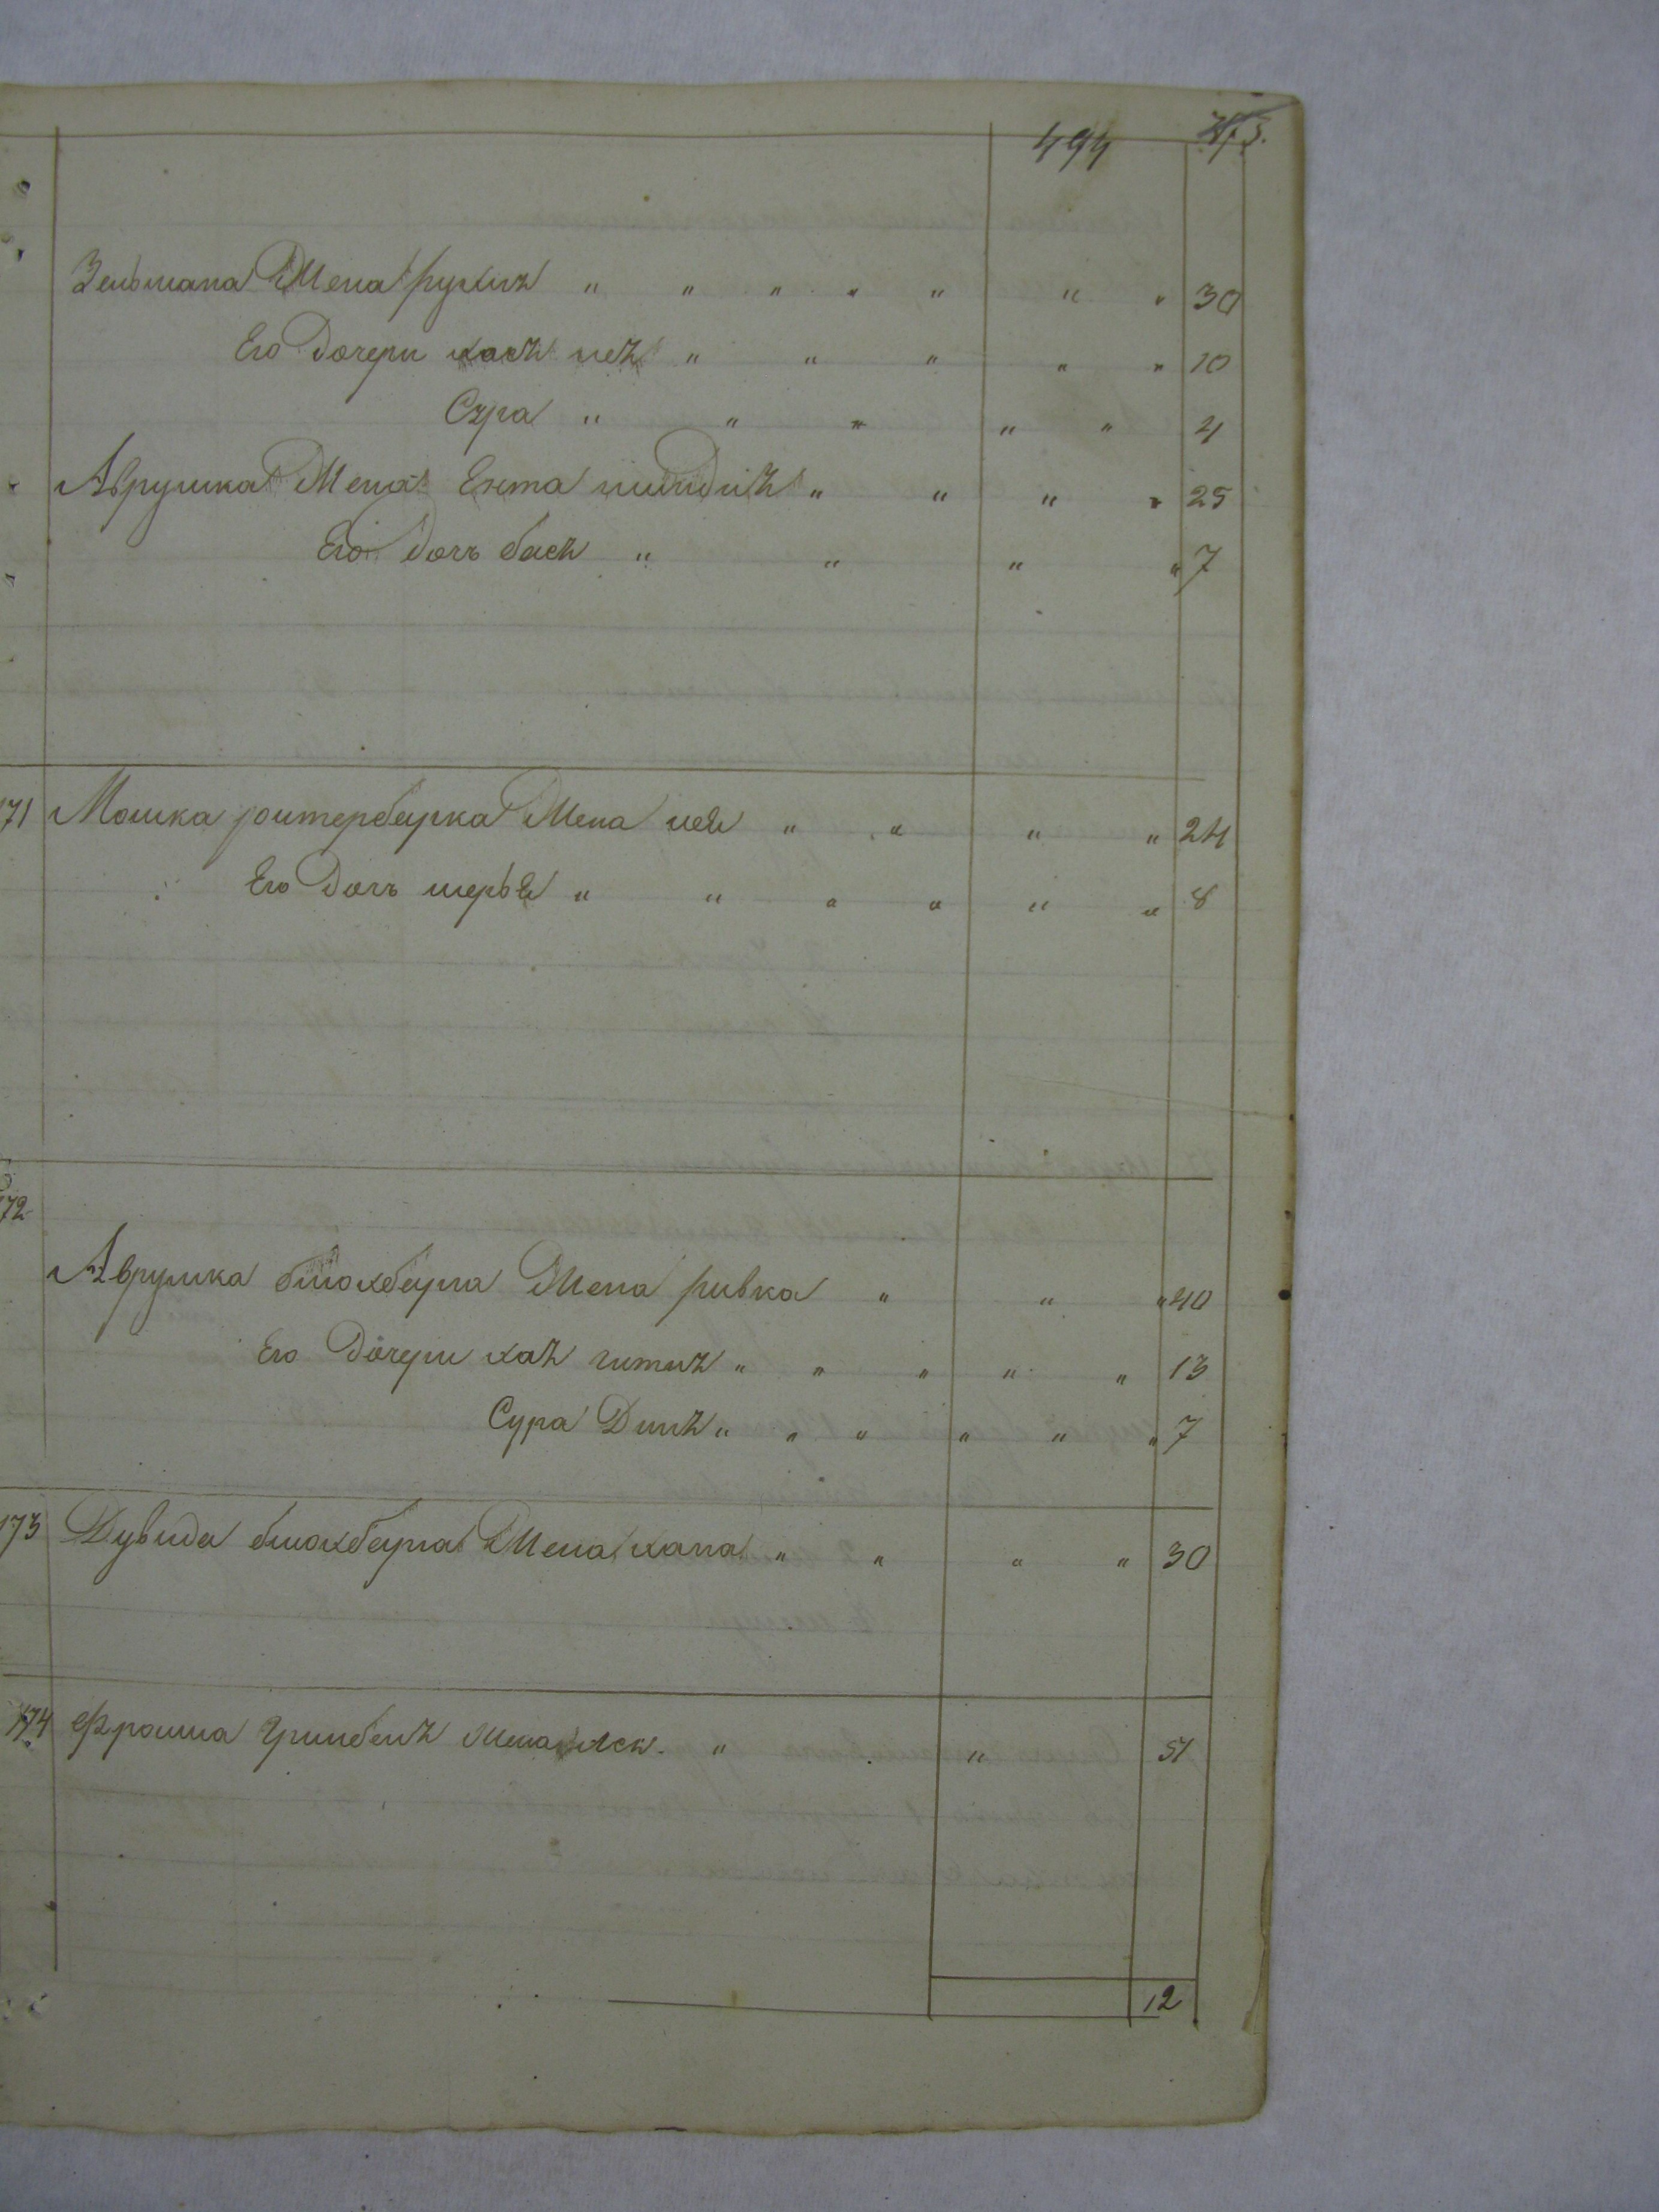 494
Зельмана Жена рухля " " " " " " " 30
Его дочери хася лея " " " " " 10
Сура " " " " " 4
Аврумка Жена Ента " " " " 25
Его дочь бася " " " " 7
171 Мошка ритербарка Жена лея " " " " 24
Его дочь перья " " " " " " 8
172
Аврумка блохбарга Жена ривка " " " 40
Его дочери хая гитля " " " " " 13
Сура Диня " " " " " " 7
173 Дувида блохбарга Жена хана " " " " 30
174 Фроима Гринбеля Жена " " 51
12